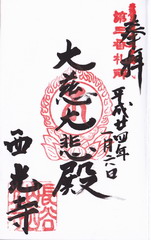 奉拝
第三番札所
平成廿四年
一月六日
大慈大悲殿
西光寺